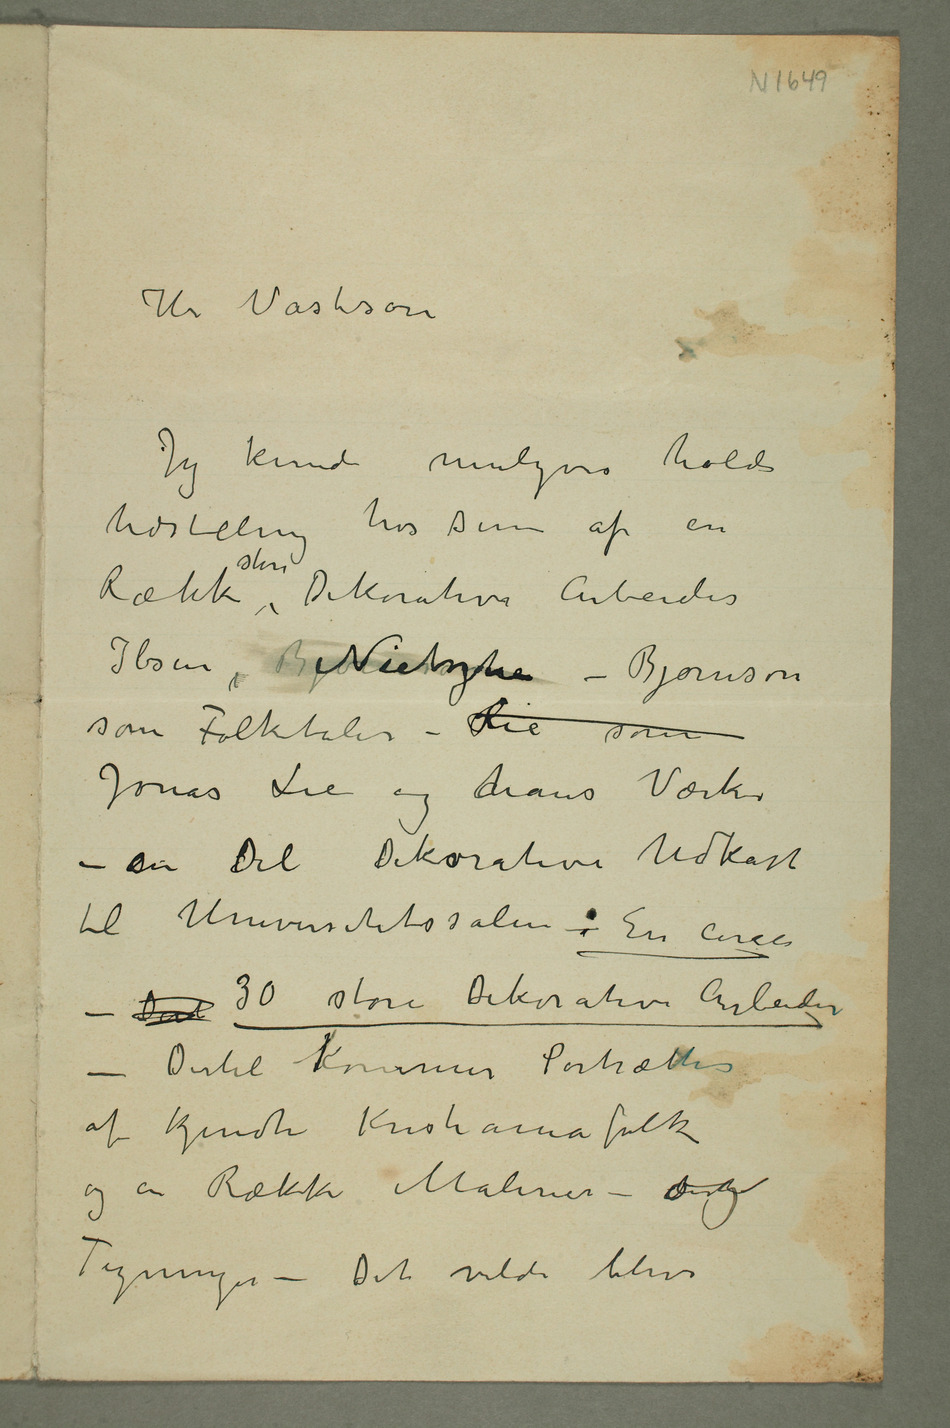 N 1649
Hr Vastesøn
Jg kunde muligvis holde
udstilling hos Dem af en
Række store Dekorative Arbeider
Ibsen, Nietzche – Bjørnson
som Folketaler – Lie som
Jonas Lie og hans Værker
– en Del Dekorative Udkast
til Universitetssalen : En circa
– Del 30 store Dekorative Arbeider
– Dertil kommer Portrætter
af kjendte Kristianiafolk
og en Række Malerier – og
Tegninger – Det vilde blive